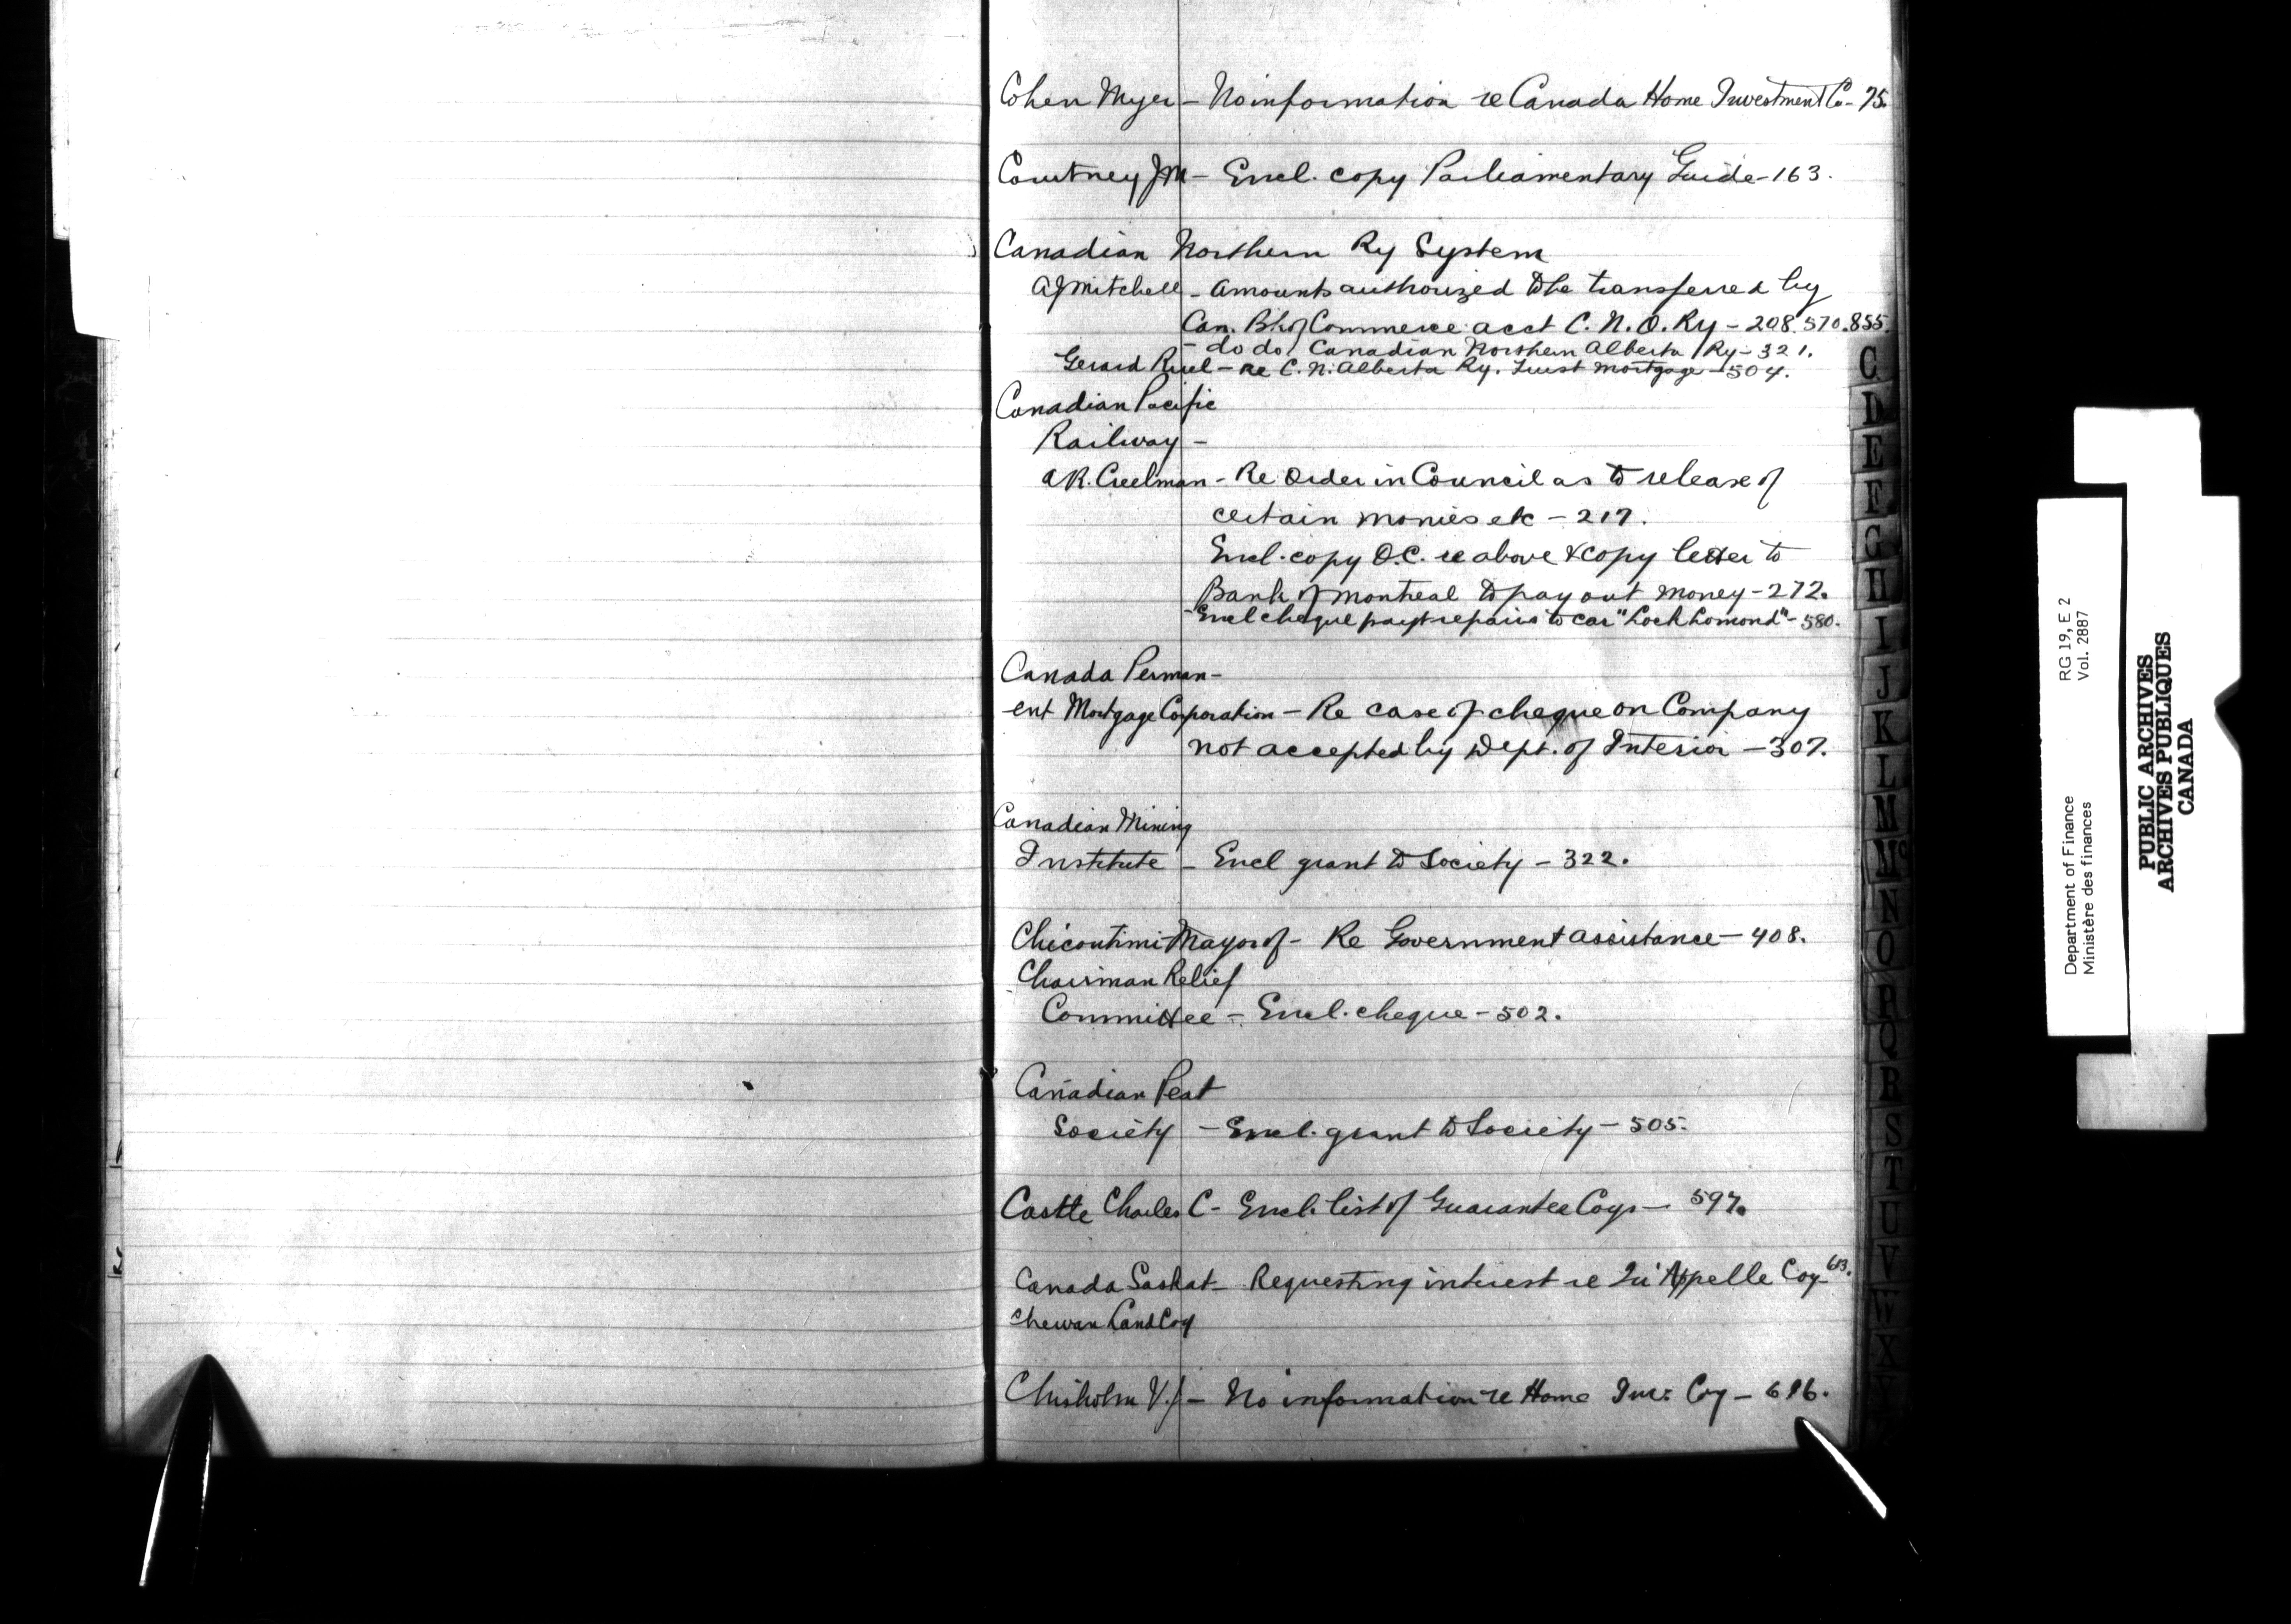 Cohen Myer - No information re Canada Home Investment Co - 75.
Courtney JM - Encl. copy Parliamentary Guide - 163.
Canadian Northern Ry System
AJ Mitchell - Amounts authorized to be transferred by
Can. Bk of Commerce acct C. N. O. Ry - 208. 570. 855.
- do do / Canadian Northern Alberta Ry - 321.
Gerard Ruel - Re C. N. Alberta Ry. Trust Mortgage - 504.
Canadian Pacific
Railway -
A R. Creelman - Re Order in Council as to release of
certain monies etc - 217.
Encl. copy O.C. re above & copy letter to
Bank of Montreal to pay out money - 272.
- Encl cheque payt repairs to car "Loch Lomond" - 580.
Canada Perman-
ent Mortgage Corporation - Re case of cheque on Company
not accepted by Dept. of Interior - 307.
Canadian Mining
Institute - Encl grant to Society - 322.
Chicoutimi Mayor of - Re Government assistance - 408.
Chairman Relief
Committee - Encl. cheque - 502.
Canadian Peat
Society - Encl. grant to Society - 505.
Castle Charles C - Encl. list of Guarantee Coys - 597.
Canada Saskat- Requesting interest re Qu'Appelle Coy 613.
chewan Land Coy
Chisholm V.J - No information re Home Inv: Coy - 616.
C
D
E
F
G
H
I
J
K
L
M
Mc
N
O
P
Q
R
S
T
U
V
W
X
Department of Finance RG 19, E 2
Ministère des finances Vol. 2887
PUBLIC ARCHIVES
ARCHIVES PUBLIQUES
CANADA